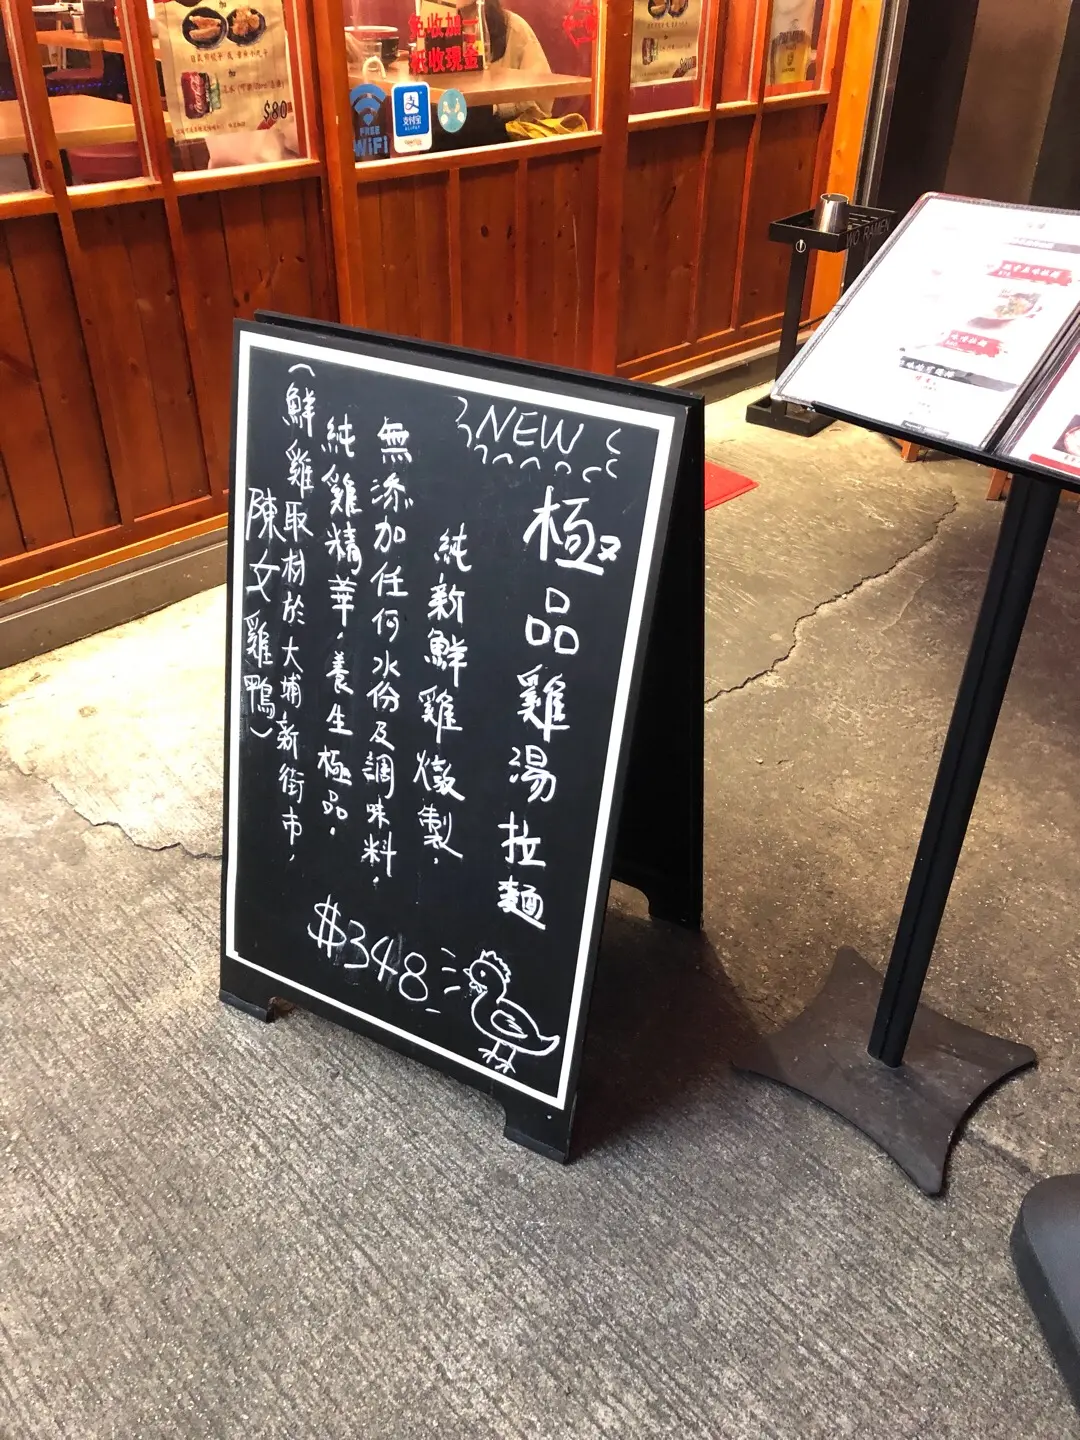 NEW
極品雞湯拉麵
純新鮮雞燉製，
無添加任何水份及調味料，
純雞精華，養生極品，
（鮮雞取材於大埔新街市，
陳文雞鴨）
$348
免收加一
只收現金
FREE
WiFi
支付宝
$80
WO RAMEN